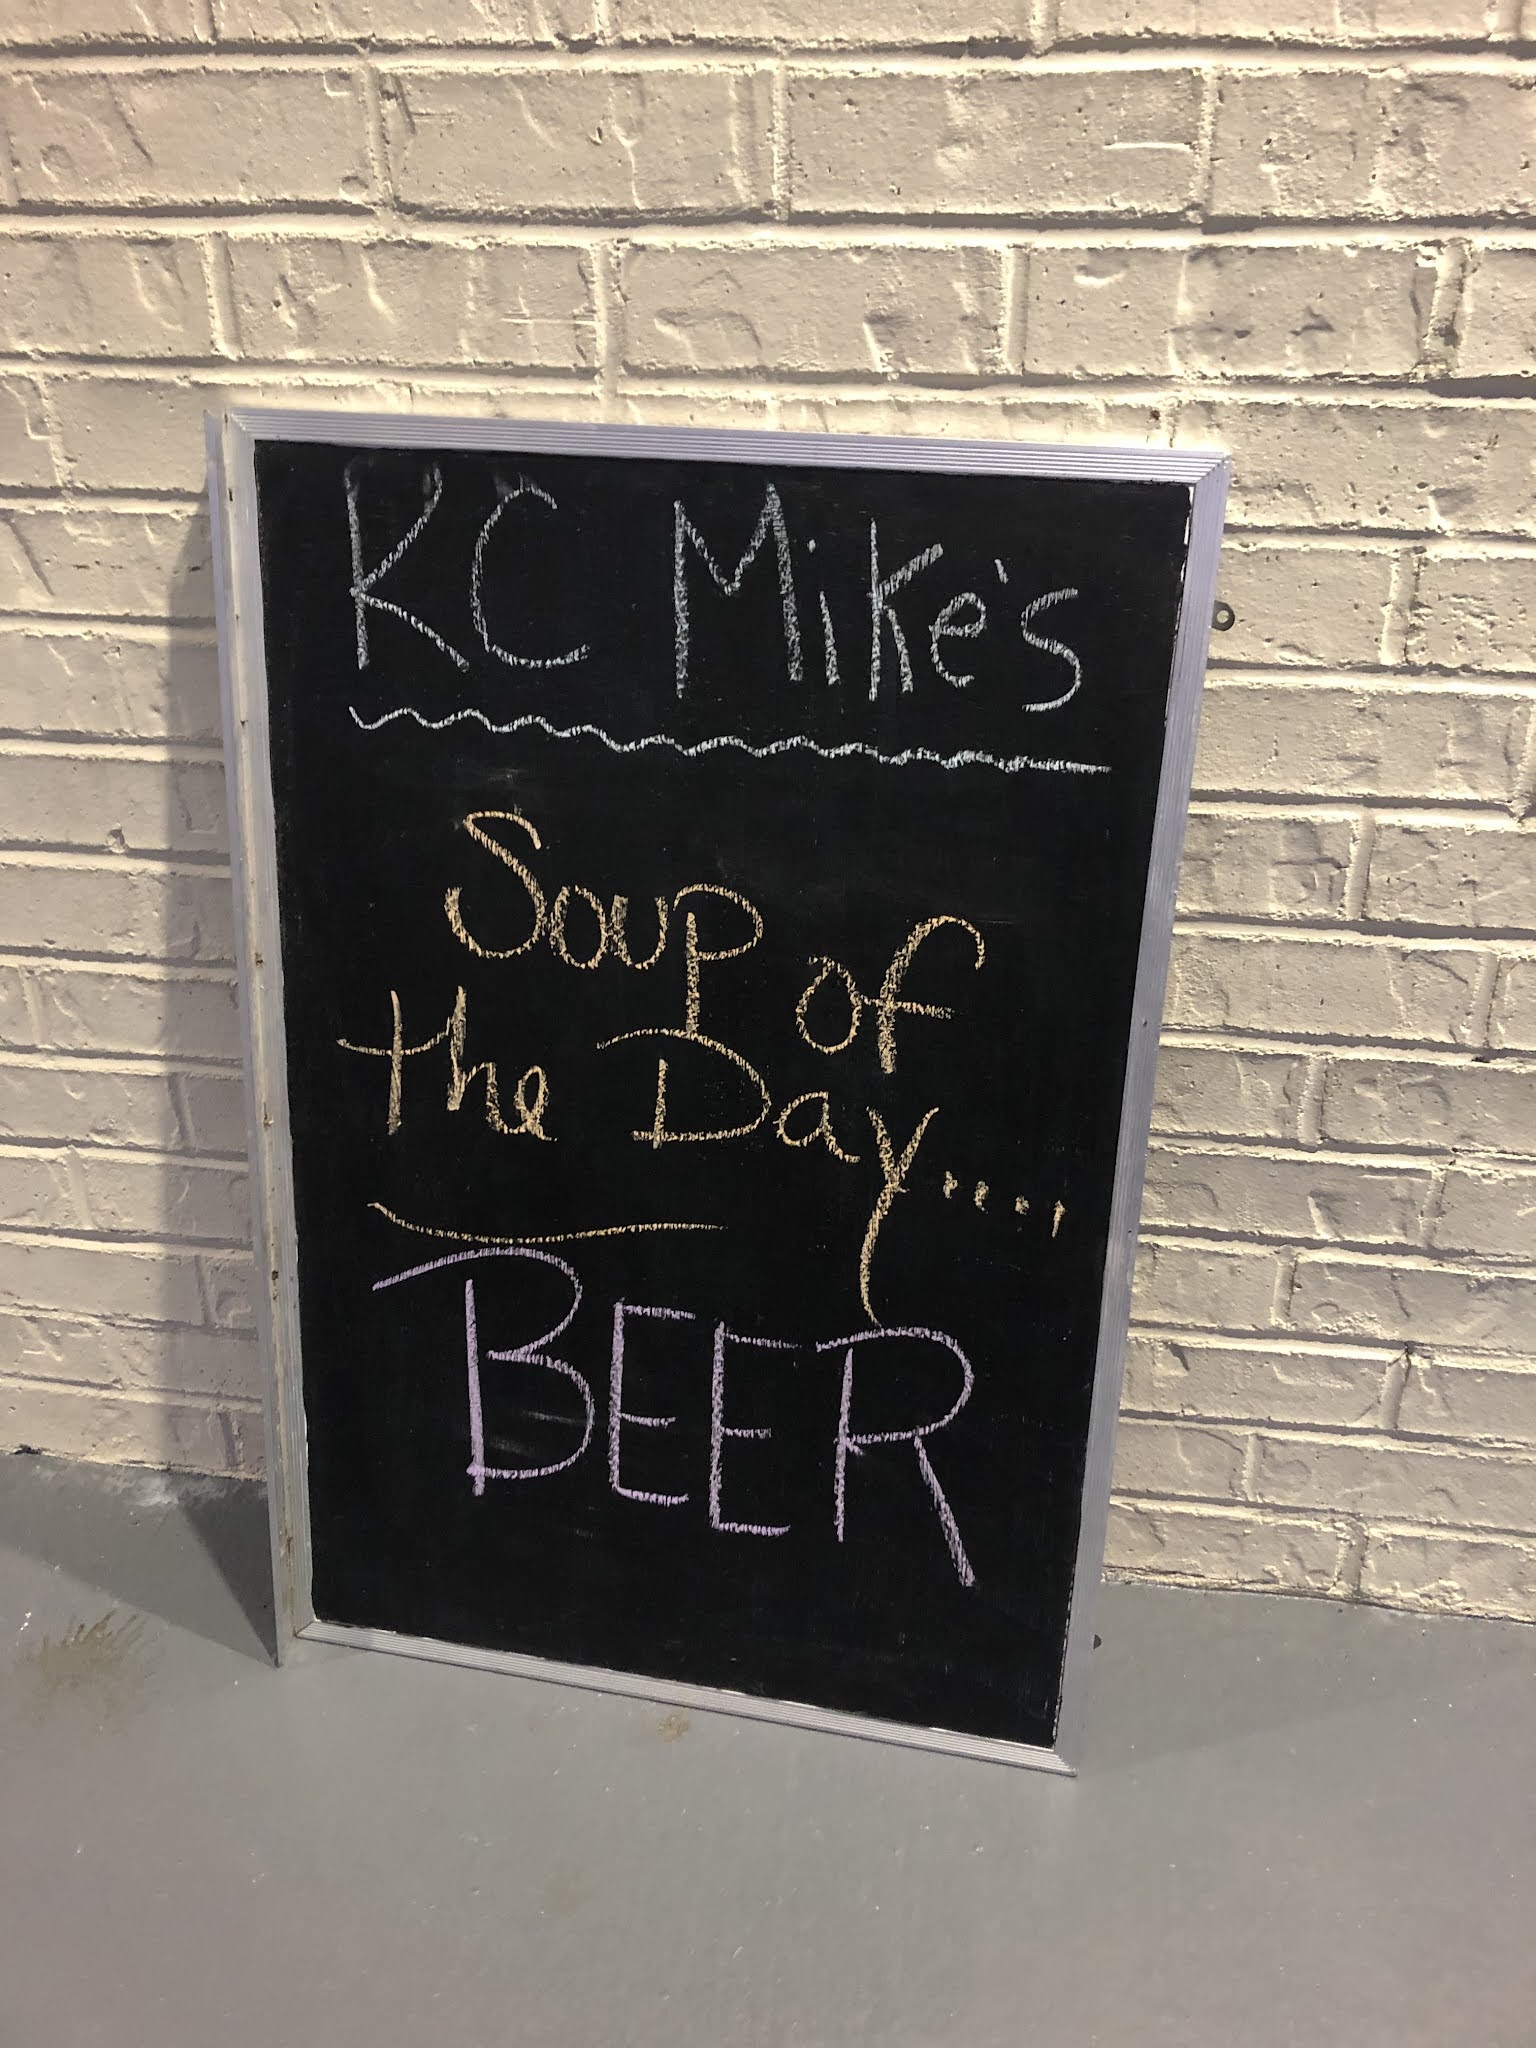 KC Mike's
Soup of
the Day.....
BEER